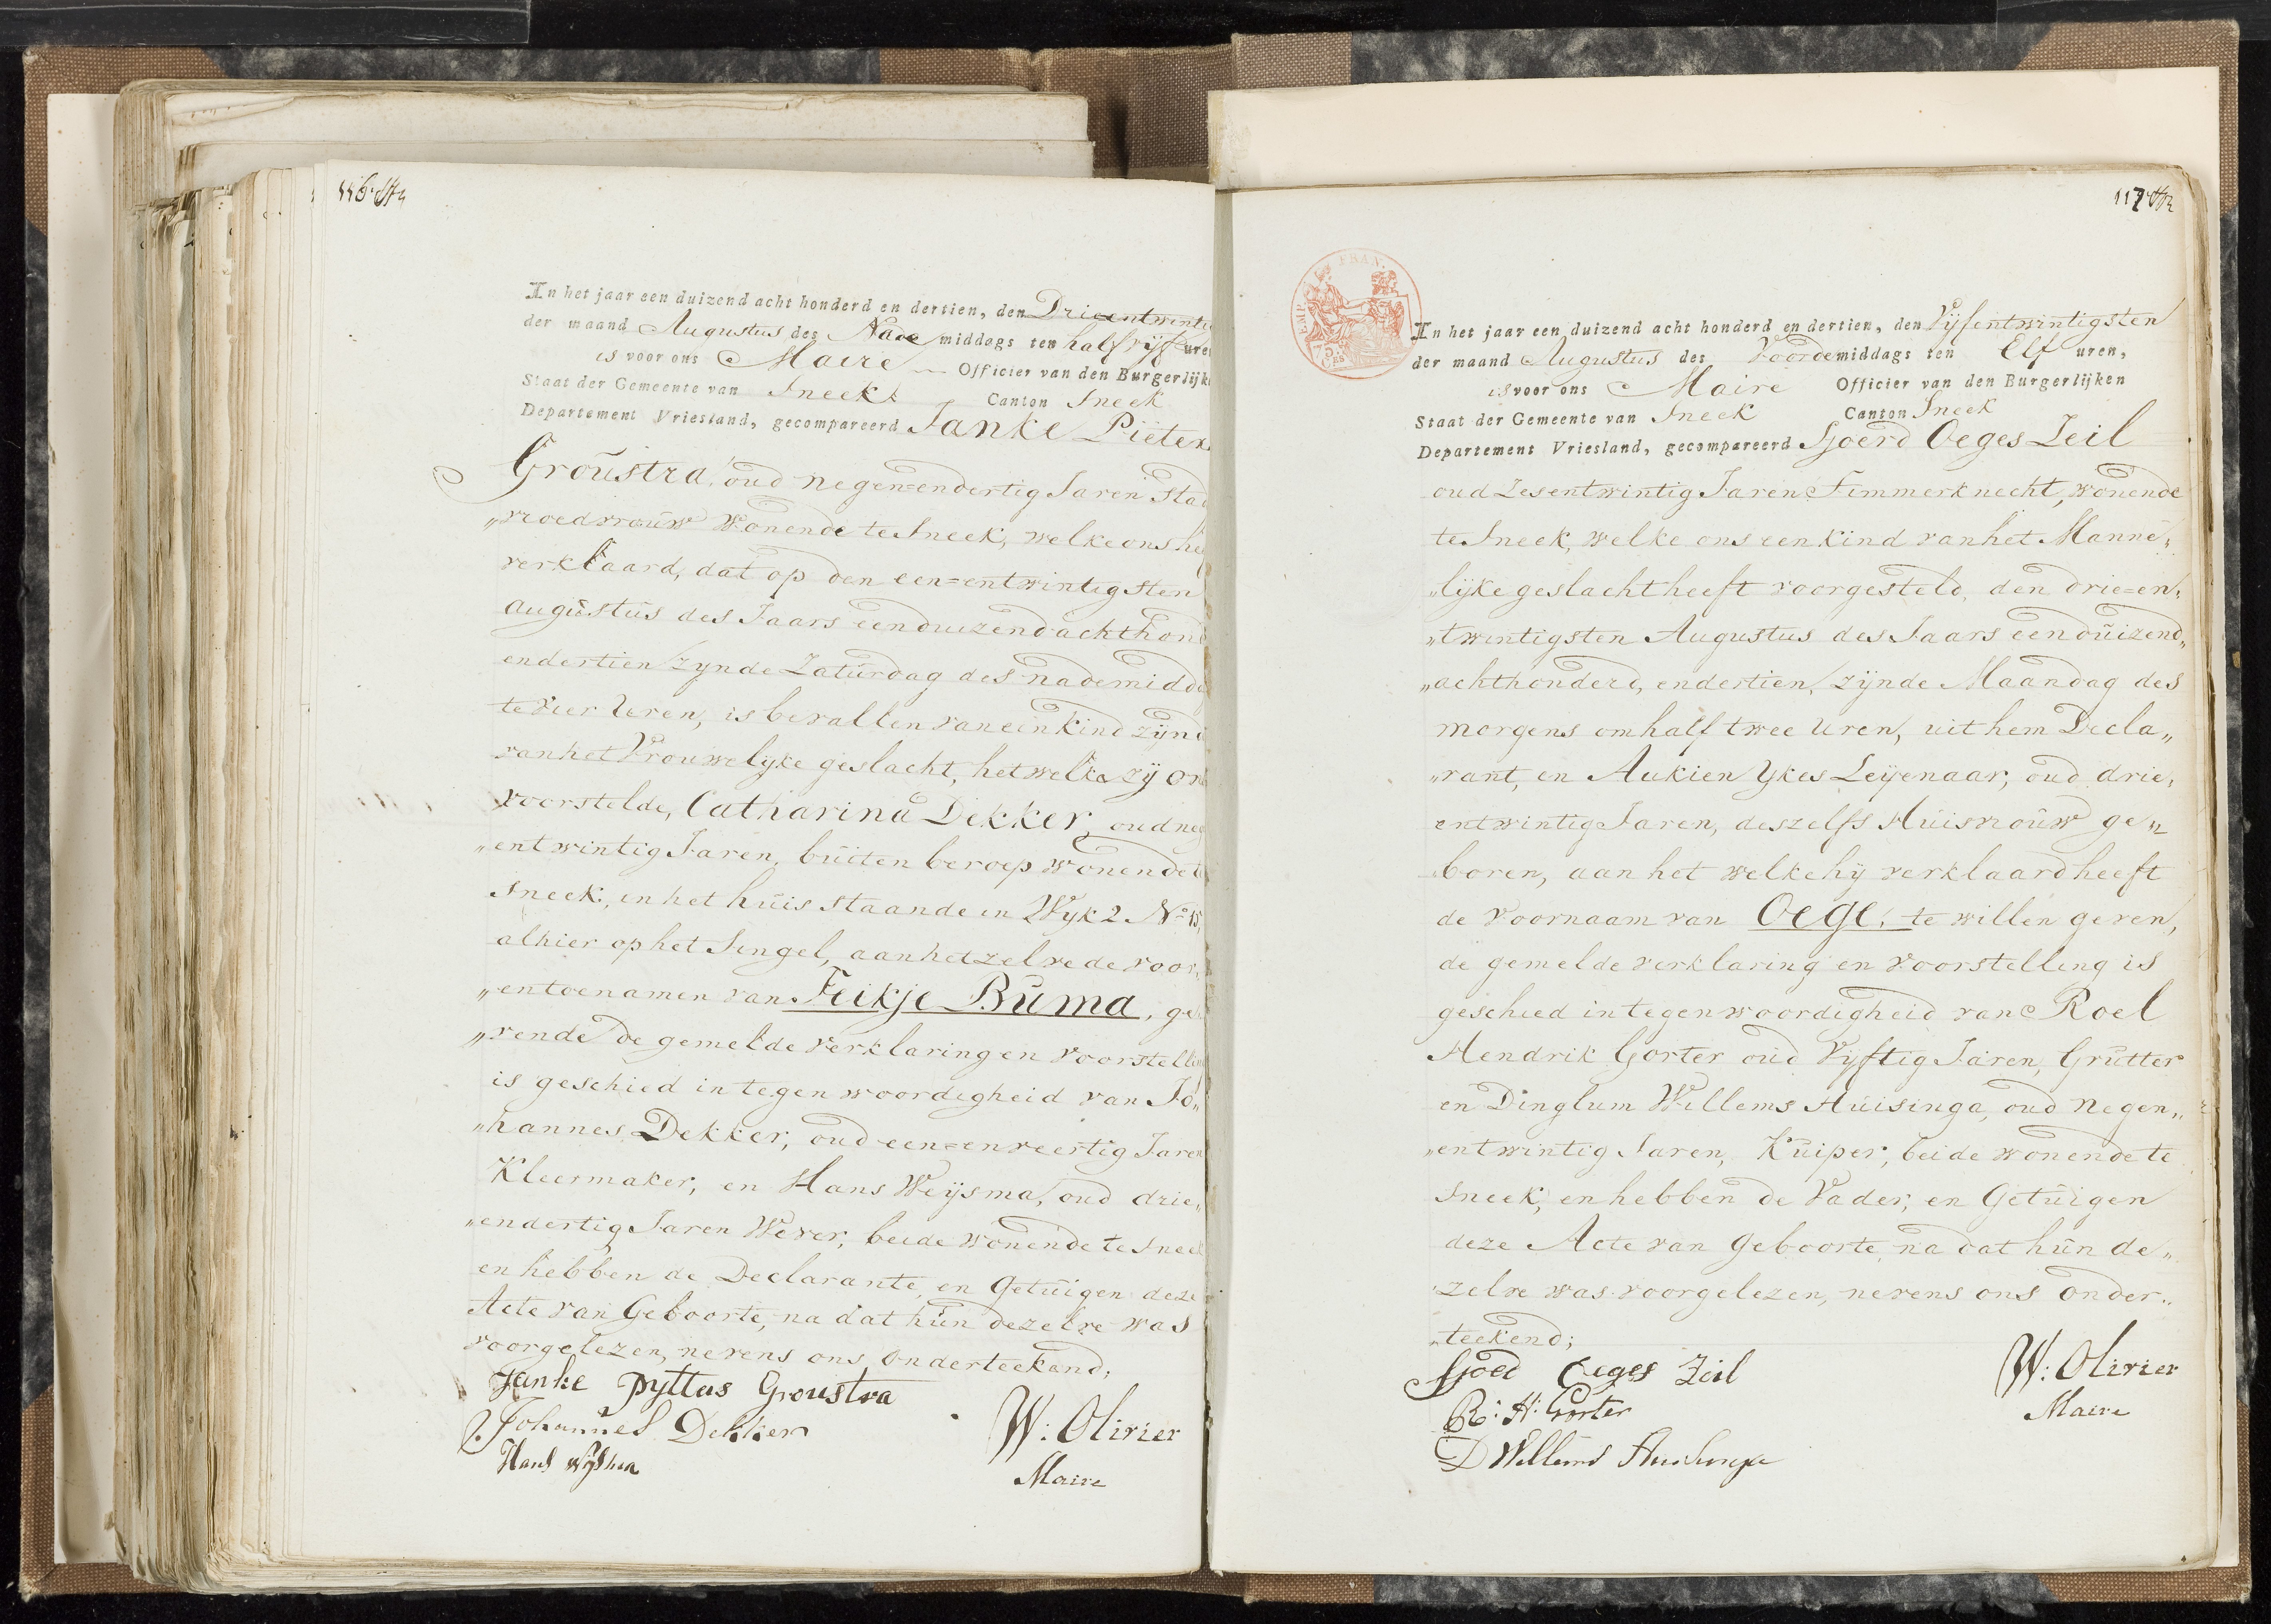 116
In het jaar een duizend acht honderd en dertien, den Drieentwinti
der maand Augustus des Nade middags ten half vyf ure
is voor ons Maire Officier van den Burgerlijk
Staat der Gemeente van Sneek Canton Sneek
Departement Vriesland, gecompareerd Janke Pieters
Groustra, oud negen=endertig Jaren Stad
„vroedvrouw wonende te Sneek, welke ons hee
verklaard, dat op den een=entwintigsten
Augustus des Jaars eenduizendachthond
endertien zynde Zaturdag des nademidda
te vier Uren, is bevallen van een kind zijnd
van het Vrouwelijke geslacht, het welke zij ons
voorstelde, Catharina Dekker, oud neg
„entwintig Jaren, buiten beroep wonende te
Sneek, in het huis staande in Wijk 2 No 15,
alhier op het Singel, aan hetzelve de voor„
„entoenamen van Feikje Buma, ge„
„vende de gemelde verklaring en voorstelling
is geschied in tegenwoordigheid van Jo„
„hannes Dekker, oud een=enveertig Jaren
Kleermaker, en Hans Weijsma, oud drie„
„endertig Jaren Wever, beide wonende te Sneek
en hebben de Declarante, en Getuigen deze
Acte van Geboorte, na dat hun dezelve was
voorgelezen, nevens ons onderteekend;
Janke pyttus Groustra
Johannes Dekker
W: Olivier
Hans Wijsma
Maire
117
EMP. FRAN.
75
In het jaar een duizend acht honderd en dertien, den Vijfentwintigsten
der maand Augustus des Voordemiddags ten Elf uren,
is voor ons Maire Officier van den Burgerlijken
Staat der Gemeente van Sneek Canton Sneek
Departement Vriesland, gecompareerd Sjoerd Oeges Zeil
oud Zesentwintig Jaren Timmerknecht, wonende
te Sneek, welke ons een kind van het Manne„
„lijke geslacht heeft voorgesteld, den drie=en„
„twintigsten Augustus des Jaars eenduizend„
„achthonderd, endertien, zijnde Maandag des
morgens om half twee Uren, uit hem Decla„
„rant, en Aukien Ykes Leijenaar, oud drie„
entwintig Jaren, deszelfs Huisvrouw ge„
boren, aan het welke hij verklaard heeft
de voornaam van Oege, te willen geven,
de gemelde verklaring en voorstelling is
geschied in tegenwoordigheid van Roel
Hendrik Gorter oud Vijftig Jaren, Grutter
en Dinglum Willems Huisinga, oud negen„
„entwintig Jaren, Kuiper, beide wonende te
Sneek, en hebben de Vader, en Getuigen
deze Acte van Geboorte, na dat hun de„
zelve was voorgelezen, nevens ons onder„
„teekend;
Sjoed Oeges Zeil
W: Olivier
R: H: Gorter
Maire
D Willems Huisinga